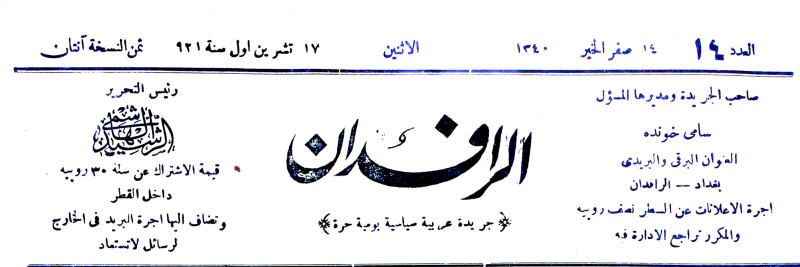 العدد ١٤ ١٤ صفر الخير ١٣٤٠ الاثنين ١٧ تشرين اول سنة ٩٢١ ثمن النسخة آنتان
صاحب الجريدة ومديرها المسؤل
سامى خونده
العنوان البرقى والبريدى
بغداد — الرافدان
اجرة الاعلانات عن السطر نصف روبيه
والمكرر تراجع الادارة فيه
الرافدان
جريدة عربية سياسية يومية حرة
رئيس التحرير
الهاشمى
قيمة الاشتراك عن سنة ٣٠ روبيه
داخل القطر
وتضاف اليها اجرة البريد فى الخارج
لرسائل لاتستعاد